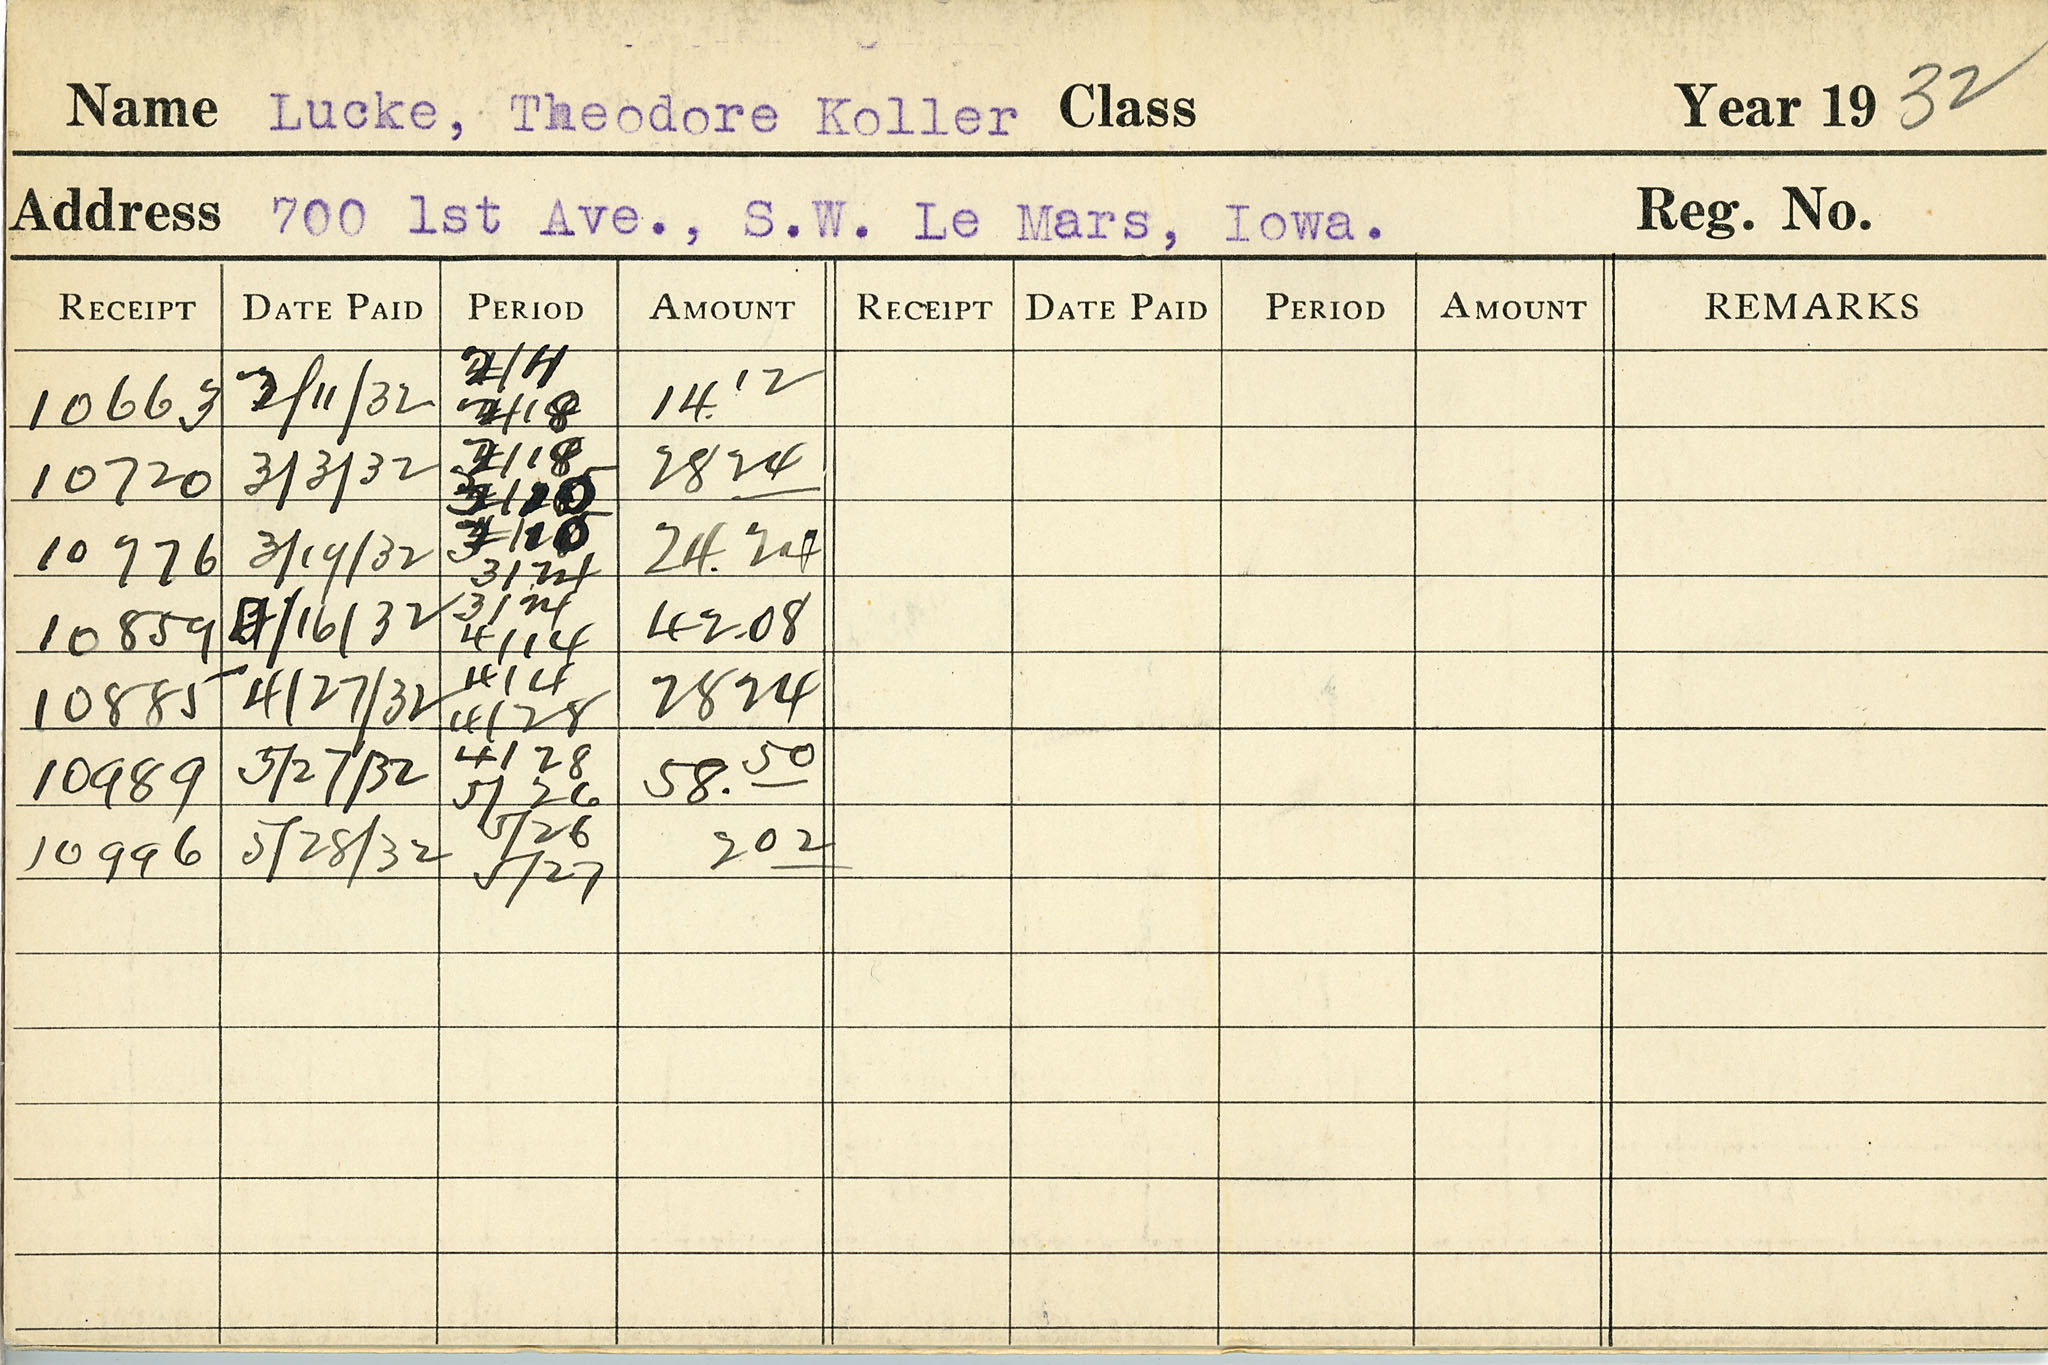 Name Lucke, Theodore Koller Class Year 19 32
Address 700 1st Ave., S.W. Le Mars, Iowa. Reg. No.
RECEIPT DATE PAID PERIOD AMOUNT RECEIPT DATE PAID PERIOD AMOUNT REMARKS
2/11
10663 2/11/32 14.12
2/18
2/18
10720 3/3/32 28 24
10776 3/19/32 24.24
3/24
3/24
10859 4/16/32 42.08
4/14
4/14
10885 4/27/32 28 24
4/28
4/28
10989 5/27/32 58.50
5/26
5/26
10996 5/28/32 202
5/27